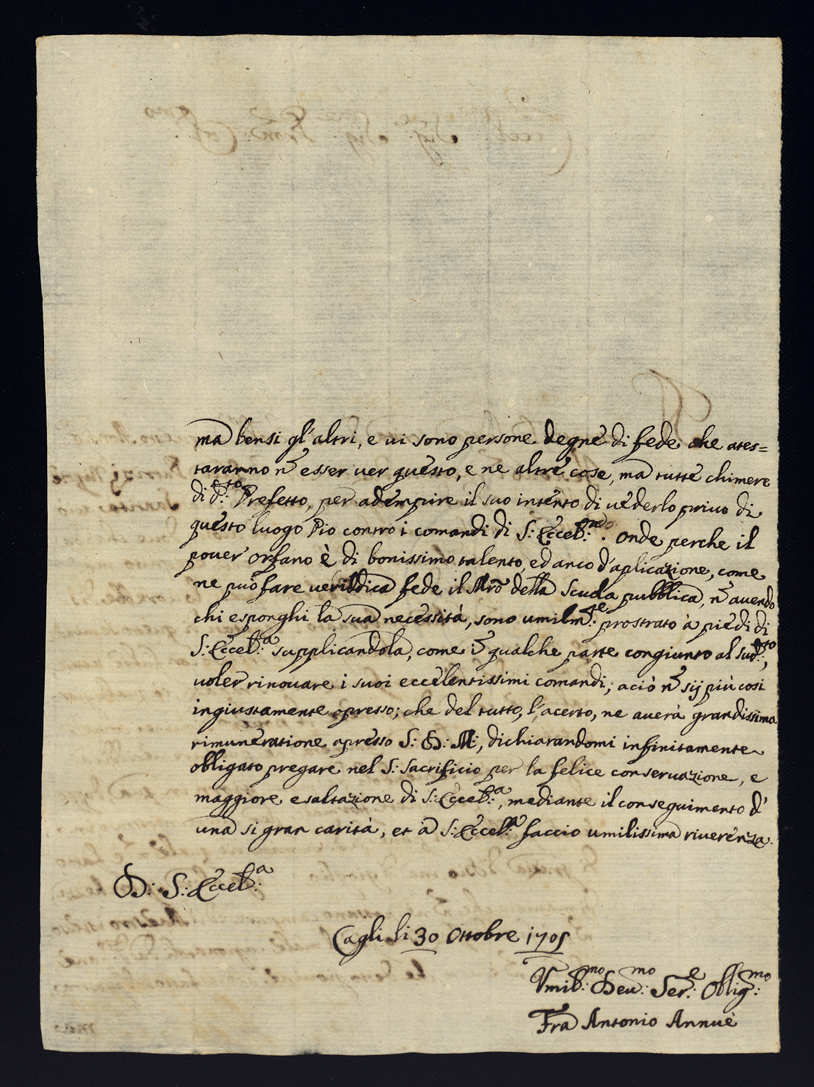 ma bensi gl'altri, e vi sono persone degne di fede che ates=
taranno ñ esser ver questo, e ne altre cose, ma tutte chimere
di d:to Prefetto, per adempire il suo intento di vederlo privo di
questo luogo Pio contro i comandi di S: Eccel:za onde perche il
pover orfano è di bonissimo talento, ed anco d'aplicazione, come
ne può fare veridica fede il Mro della Scuola pubblica, ñ avendo
chi esponghi la sua necessità, sono umilm:te prostrato à piedi di
S: Eccel:a supplicandola, come ĩ qualche parte congiunto al sud:tto,
voler rinovare i suoi eccelentissimi comandi; aciò ñ sij più cosi
ingiustamente opresso; che del tutto, l'acerto, ne averà grandissima
rimuneratione apresso S: D: M:, dichiarandomi infinitamente
obligato pregare nel S: Sacrificio per la felice conservazione, e
maggiore esaltazione di S: Eccel:a, mediante il conseguimento d'
una si gran carità, et à S: Eccel:a faccio umilissima riverenza.
D: S: Eccel:a
Cagli li 30 Ottobre 1705
Umil:mo Dev:mo Ser:e Oblig:mo
Fra Antonio Annuè